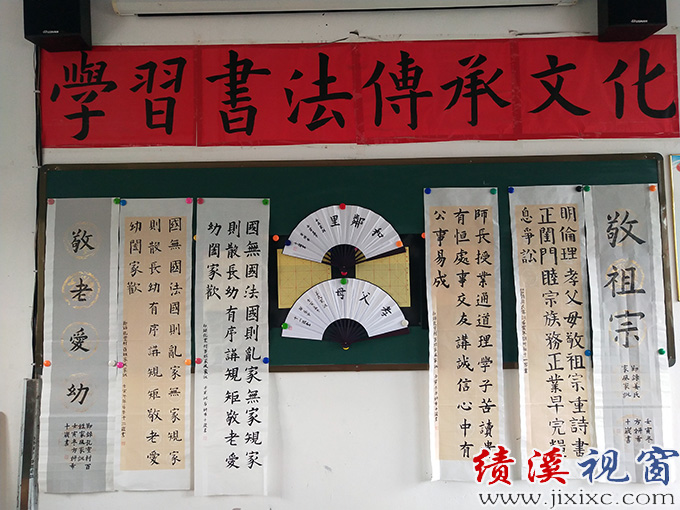 學習書法傳承文化
敬老愛幼
國無國法國則亂家無家規家
則散長幼有序講規矩敬老愛
幼闔家歡
國無國法國則亂家無家規家
則散長幼有序講規矩敬老愛
幼闔家歡
和鄰里
孝父母
師長授業通道理學子苦讀
有恒處事交友講誠信心中有
公事易成
明倫理孝父母敬祖宗重詩書
正閨門睦宗族務正業早完糧
息爭訟
敬祖宗
绩溪视窗
www.jixixc.com